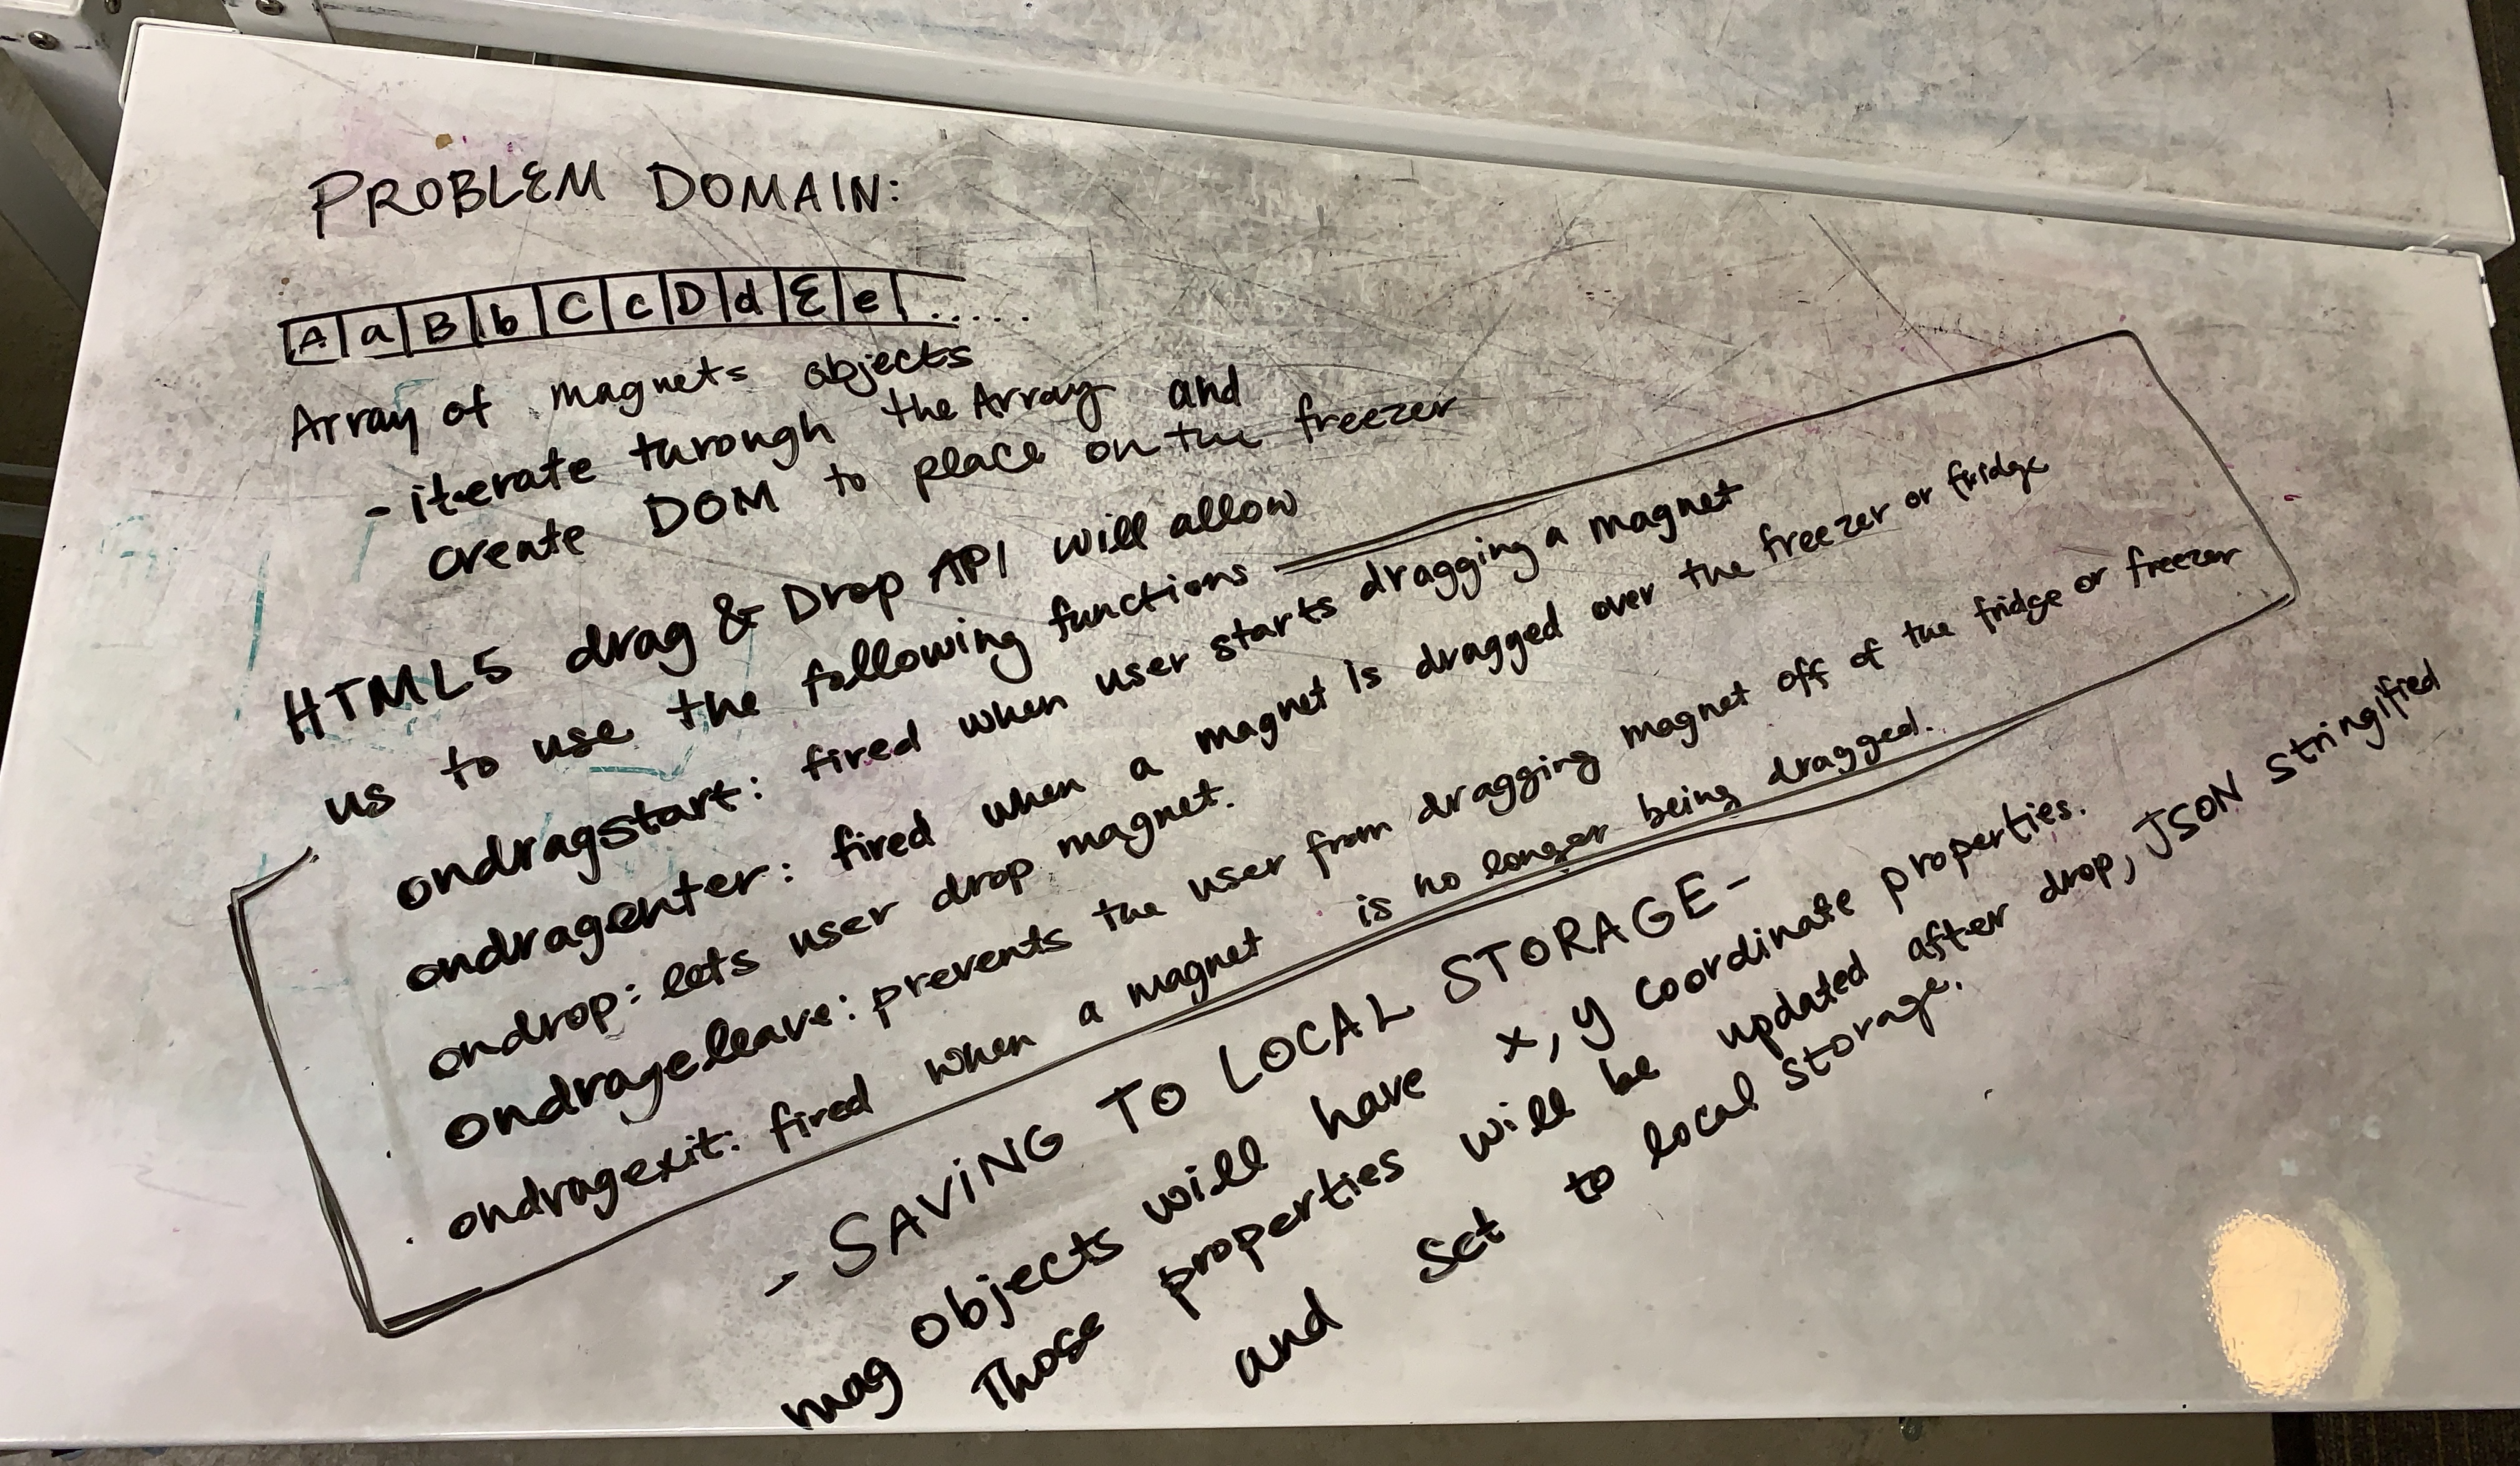 PROBLEM DOMAIN:
A a B b C c D d E e .....
Array of magnets objects
- iterate through the Array and
create DOM to place on the freezer
HTML5 drag & Drop API will allow
us to use the following functions
ondragstart: fired when user starts dragging a magnet
ondragenter: fired when a magnet is dragged over the freezer or fridge
ondrop: lets user drop magnet.
ondrageleave: prevents the user from dragging magnet off of the fridge or freezer
ondragexit: fired when a magnet is no longer being dragged.
- SAVING TO LOCAL STORAGE -
mag objects will have x, y coordinate properties.
Those properties will be updated after drop, JSON stringified
and set to local storage.